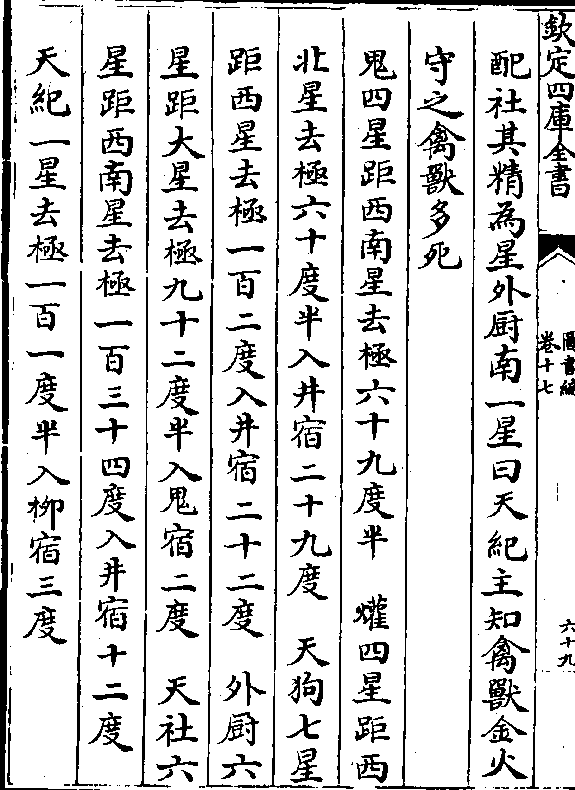 欽定四庫全書
圖書編
卷十七
六十九
配社其精為星外厨南一星曰天紀主知禽獸金火
守之禽獸多死
鬼四星距西南星去極六十九度半　爟四星距西
北星去極六十度半入井宿二十九度　天狗七星
距西星去極一百二度入井宿二十二度　外厨六
星距大星去極九十二度半入鬼宿二度　天社六
星距西南星去極一百三十四度入井宿十二度
天紀一星去極一百一度半入柳宿三度